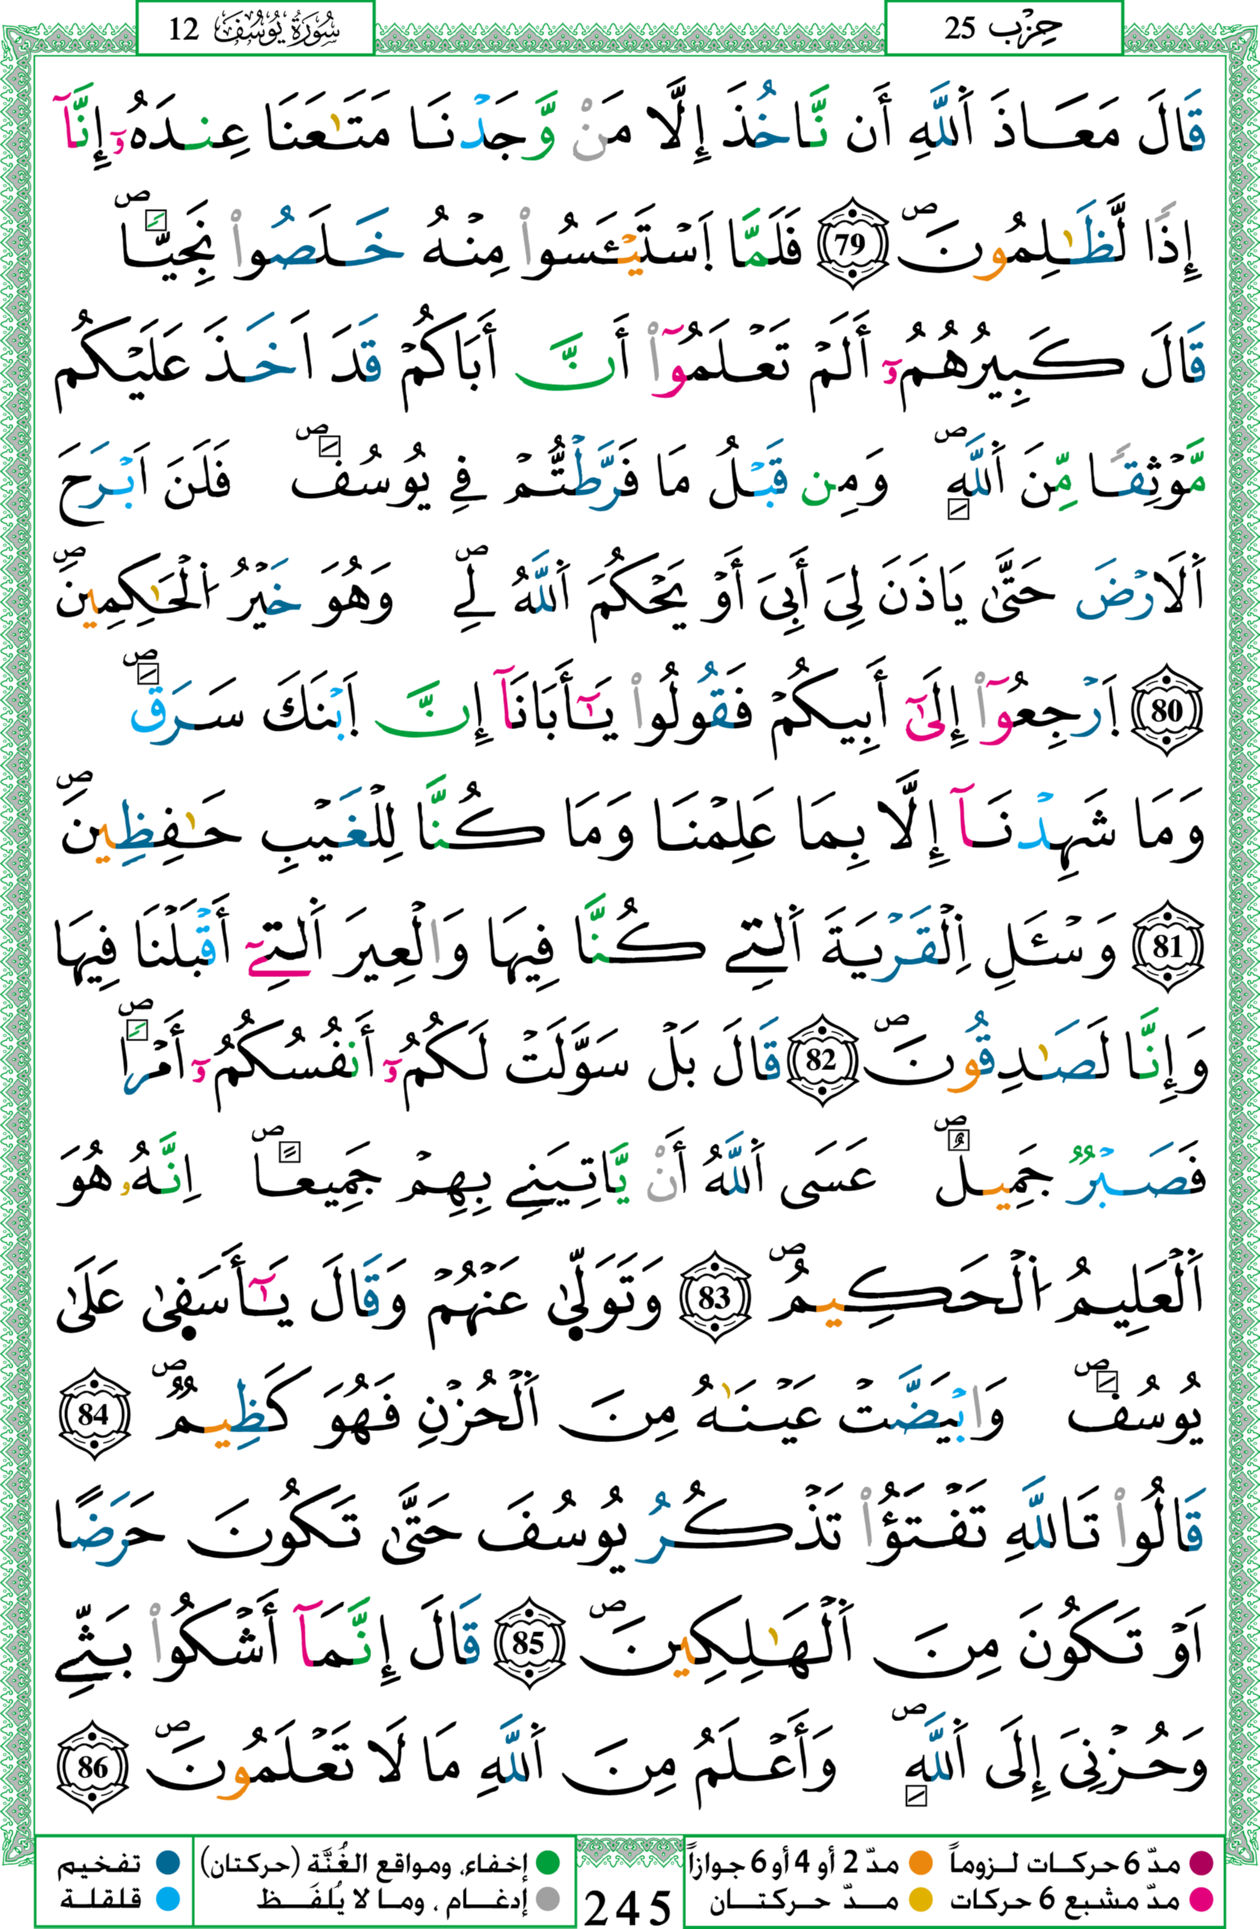 حِزْب 25
سُورَةُ يُوسُفَ 12
قَالَ مَعَاذَ اَ۬للَّهِ أَن نَّاخُذَ إِلَّا مَنْ وَّجَدْنَا مَتَٰعَنَا عِندَهُۥٓ إِنَّآ
إِذاً لَّظَٰلِمُونَۖ 79 فَلَمَّا اَ۪سْتَيْـَٔسُواْ مِنْهُ خَلَصُواْ نَجِيّاٗۖ
قَالَ كَبِيرُهُمُۥٓ أَلَمْ تَعْلَمُوٓاْ أَنَّ أَبَاكُمْ قَدَ اَخَذَ عَلَيْكُم
مَّوْثِقاً مِّنَ اَ۬للَّهِۖ وَمِن قَبْلُ مَا فَرَّطتُّمْ فِے يُوسُفَۖ فَلَنَ اَبْرَحَ
اَ۬لَارْضَ حَتَّىٰ يَاذَنَ لِيَ أَبِيَ أَوْ يَحْكُمَ اَ۬للَّهُ لِےۖ وَهُوَ خَيْرُ اُ۬لْحَٰكِمِينَۖ
80 اَ۪رْجِعُوٓاْ إِلَىٰٓ أَبِيكُمْ فَقُولُواْ يَٰٓأَبَانَآ إِنَّ اَ۪بْنَكَ سَرَقَۖ
وَمَا شَهِدْنَآ إِلَّا بِمَا عَلِمْنَا وَمَا كُنَّا لِلْغَيْبِ حَٰفِظِينَۖ
81 وَسْـَٔلِ اِ۬لْقَرْيَةَ اَ۬لتِے كُنَّا فِيهَا وَالْعِيرَ اَ۬لتِےٓ أَقْبَلْنَا فِيهَا
وَإِنَّا لَصَٰدِقُونَۖ 82 قَالَ بَلْ سَوَّلَتْ لَكُمُۥٓ أَنفُسُكُمُۥٓ أَمْراٗۖ
فَصَبْرٌ جَمِيلٌۖ عَسَى اَ۬للَّهُ أَنْ يَّاتِيَنِے بِهِمْ جَمِيعاًۖ اِنَّهُۥ هُوَ
اَ۬لْعَلِيمُ اُ۬لْحَكِيمُۖ 83 وَتَوَلّ۪ىٰ عَنْهُمْ وَقَالَ يَٰٓأَسَف۪ىٰ عَلَىٰ
يُوسُفَۖ وَابْيَضَّتْ عَيْنَٰهُ مِنَ اَ۬لْحُزْنِ فَهُوَ كَظِيمٌۖ 84
قَالُواْ تَاللَّهِ تَفْتَؤُاْ تَذْكُرُ يُوسُفَ حَتَّىٰ تَكُونَ حَرَضاً
اَوْ تَكُونَ مِنَ اَ۬لْهَٰلِكِينَۖ 85 قَالَ إِنَّمَآ أَشْكُواْ بَثِّے
وَحُزْنِيَ إِلَى اَ۬للَّهِۖ وَأَعْلَمُ مِنَ اَ۬للَّهِ مَا لَا تَعْلَمُونَۖ 86
مدّ 6 حركات لـزوماً مدّ 2 أو 4 أو 6 جوازاً
مدّ مشبع 6 حركات مـدّ حـركتـان
245
إخفاء، ومواقع الغُنَّة (حركتان) تفخيم
إدغـام ، ومـا لا يُلفَـظ قلقلة